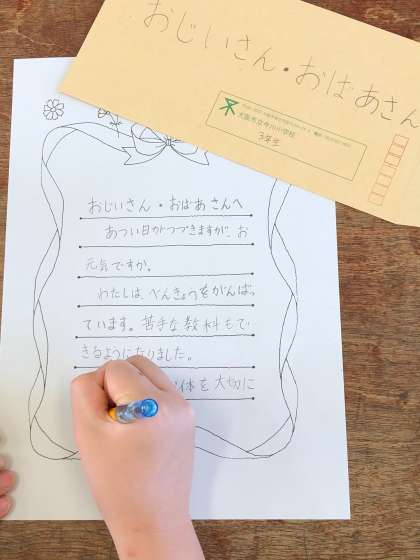 おじいさん・おばあさん
大阪市立今川小学校
3年生
おじいさん・おばあさんへ
あつい日がつづきますが、お
元気ですか。
わたしは、べんきょうをがんばっ
ています。苦手な教科もで
きるようになりました。
体を大切に